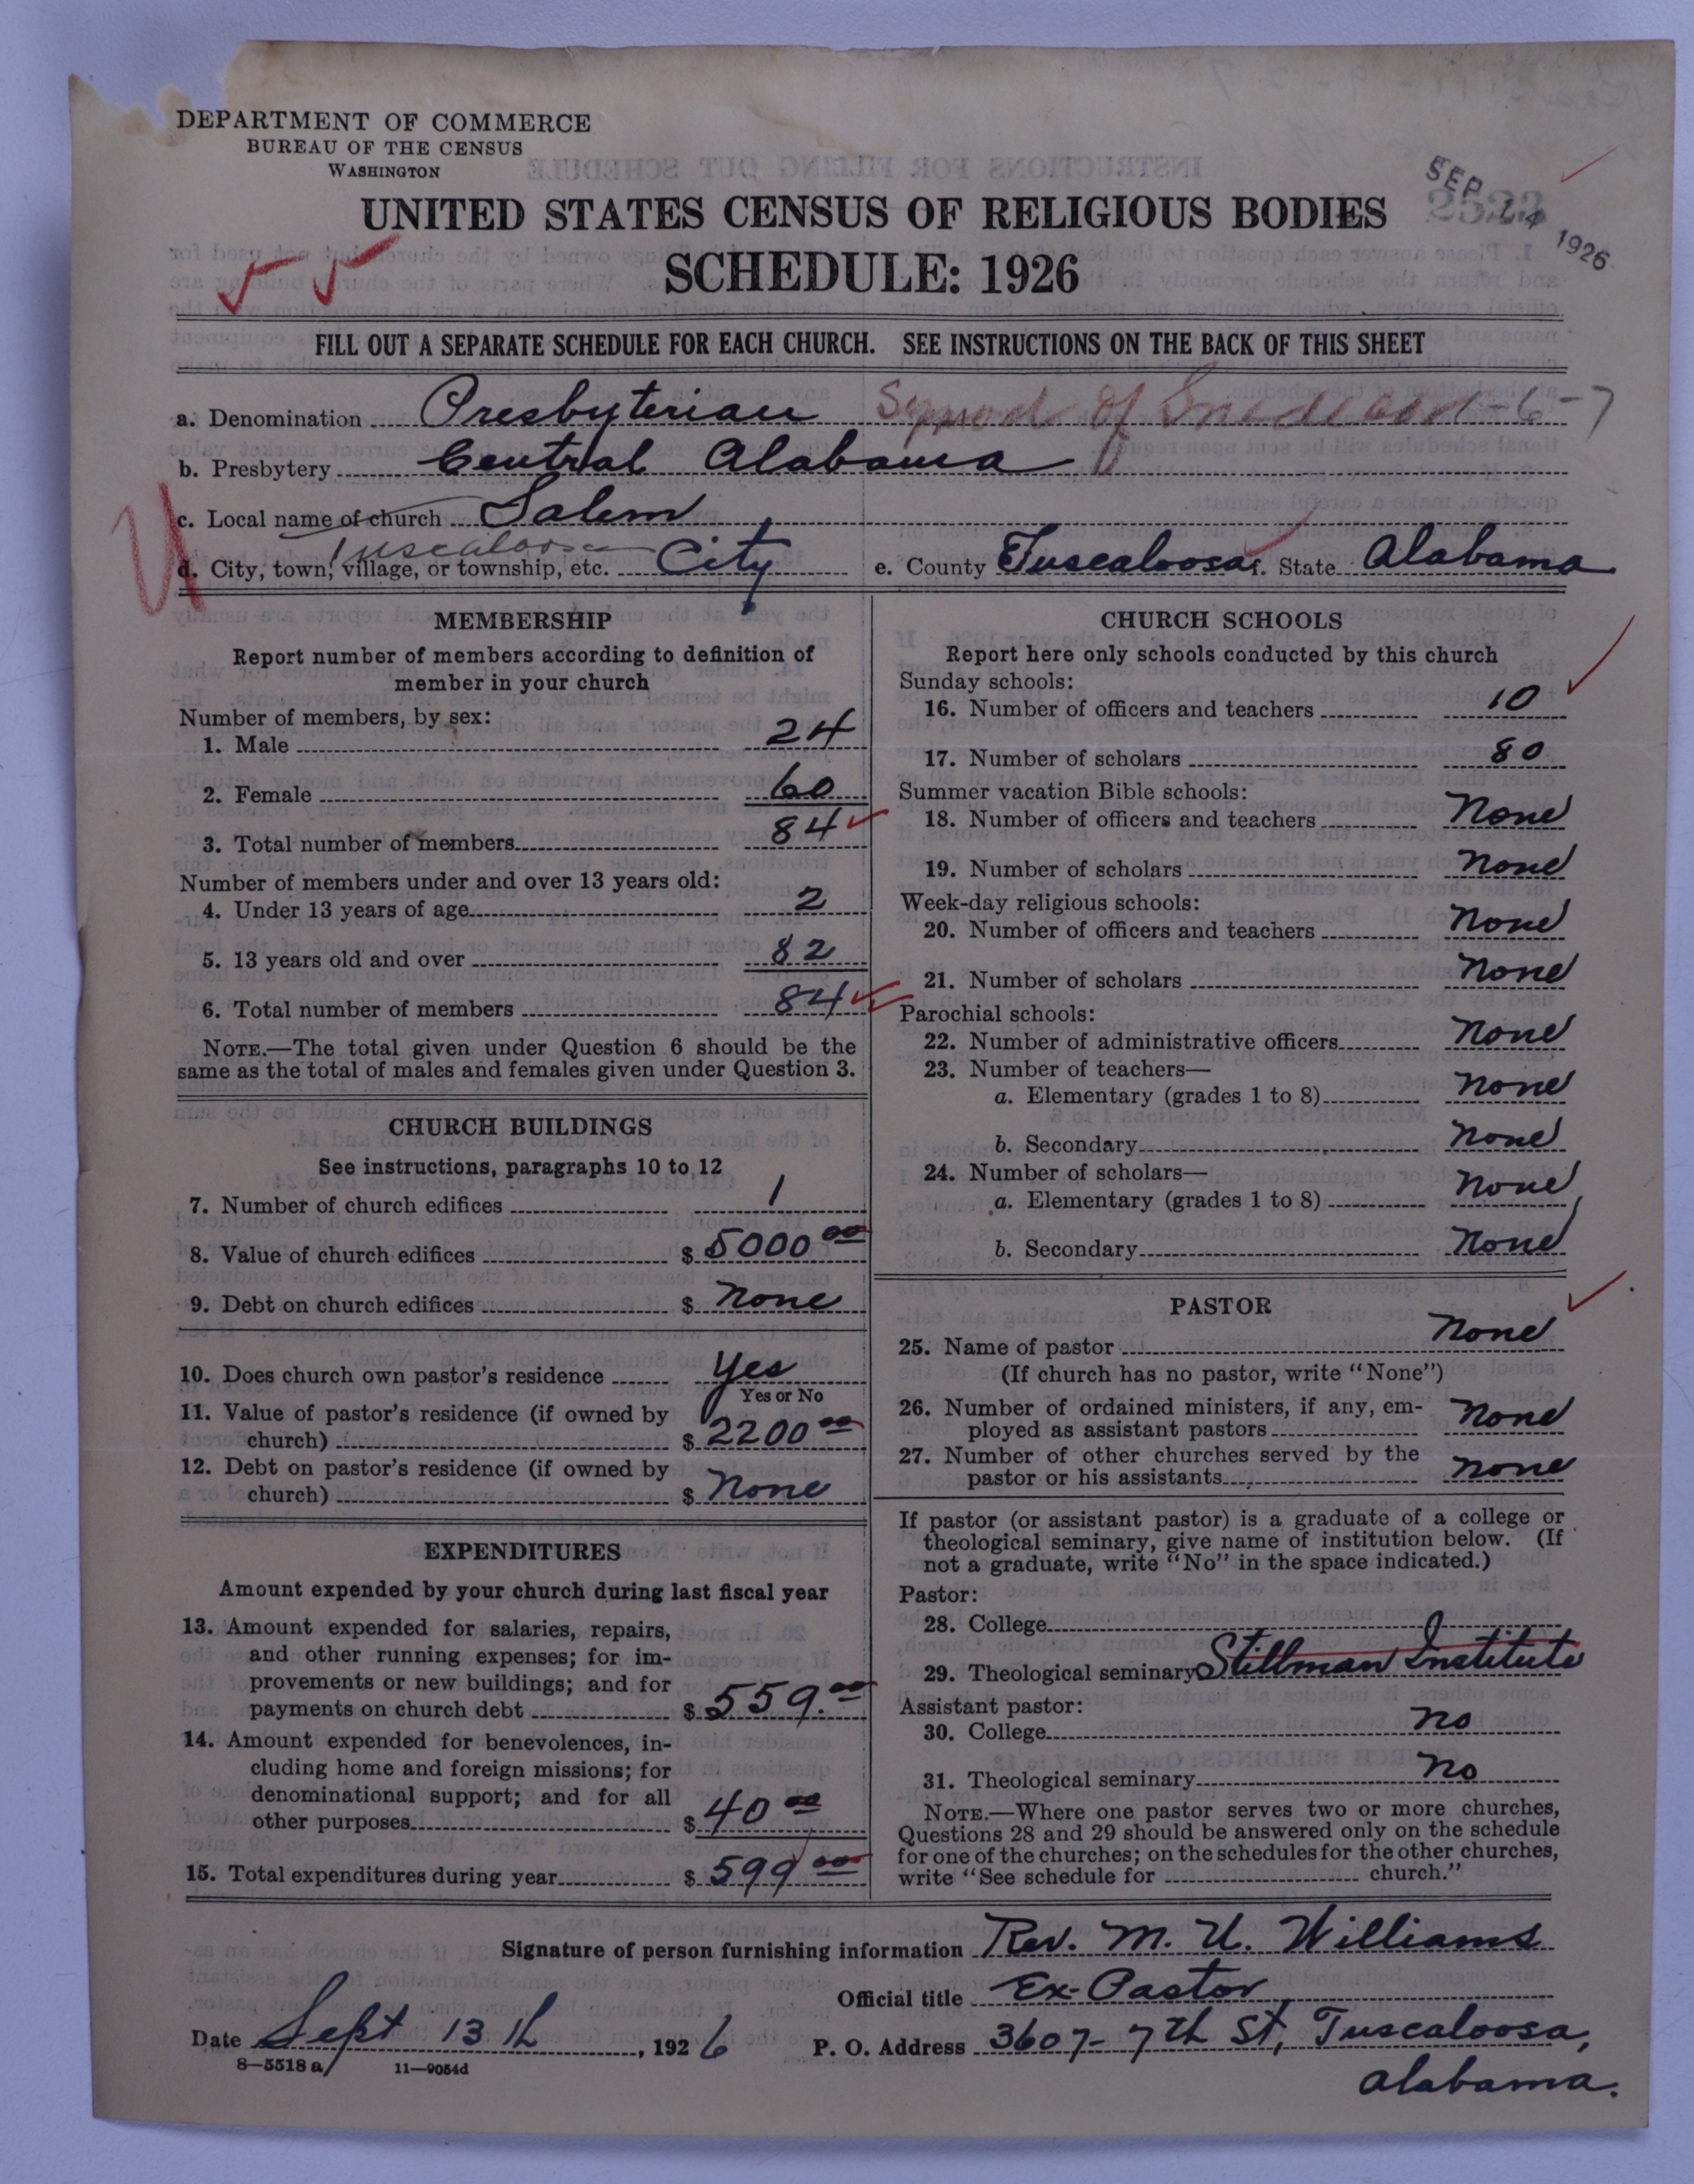 DEPARTMENT OF COMMERCE
BUREAU OF THE CENSUS
WASHINGTON
UNITED STATES CENSUS OF RELIGIOUS BODIES
SEP 14 1926
SCHEDULE: 1926
FILL OUT A SEPARATE SCHEDULE FOR EACH CHURCH. SEE INSTRUCTIONS ON THE BACK OF THIS SHEET
a. Denomination Presbyterian Synod of 1-6-7
b. Presbytery Central Alabama
c. Local name of church Salem
Tuscaloosa
d. City, town, village, or township, etc. City e. County Tuscaloosa f. State Alabama
MEMBERSHIP
Report number of members according to definition of
member in your church
Number of members, by sex:
1. Male 24
2. Female 60
3. Total number of members 84
Number of members under and over 13 years old:
4. Under 13 years of age 2
5. 13 years old and over 82
6. Total number of members 84
NOTE.—The total given under Question 6 should be the
same as the total of males and females given under Question 3.
CHURCH BUILDINGS
See instructions, paragraphs 10 to 12
7. Number of church edifices 1
8. Value of church edifices $ 5000 00
9. Debt on church edifices $ None
10. Does church own pastor's residence Yes
Yes or No
11. Value of pastor's residence (if owned by
church) $ 2200 00
12. Debt on pastor's residence (if owned by
church) $ None
EXPENDITURES
Amount expended by your church during last fiscal year
13. Amount expended for salaries, repairs,
and other running expenses; for im-
provements or new buildings; and for
payments on church debt $ 559.00
14. Amount expended for benevolences, in-
cluding home and foreign missions; for
denominational support; and for all
other purposes $ 40 00
15. Total expenditures during year $ 599 00
CHURCH SCHOOLS
Report here only schools conducted by this church
Sunday schools:
16. Number of officers and teachers 10
17. Number of scholars 80
Summer vacation Bible schools:
18. Number of officers and teachers None
19. Number of scholars None
Week-day religious schools:
20. Number of officers and teachers None
21. Number of scholars None
Parochial schools:
22. Number of administrative officers None
23. Number of teachers—
a. Elementary (grades 1 to 8) None
b. Secondary None
24. Number of scholars—
a. Elementary (grades 1 to 8) None
b. Secondary None
PASTOR
25. Name of pastor None
(If church has no pastor, write "None")
26. Number of ordained ministers, if any, em-
ployed as assistant pastors None
27. Number of other churches served by the
pastor or his assistants None
If pastor (or assistant pastor) is a graduate of a college or
theological seminary, give name of institution below. (If
not a graduate, write "No" in the space indicated.)
Pastor:
28. College
29. Theological seminary Stillman Institute
Assistant pastor:
30. College No
31. Theological seminary No
NOTE.—Where one pastor serves two or more churches,
Questions 28 and 29 should be answered only on the schedule
for one of the churches; on the schedules for the other churches,
write "See schedule for church."
Signature of person furnishing information Rev. M. U. Williams
Official title Ex-Pastor
Date Sept 13th, 1926 P. O. Address 3607- 7th St, Tuscaloosa,
Alabama.
8—5518 a 11—9054d